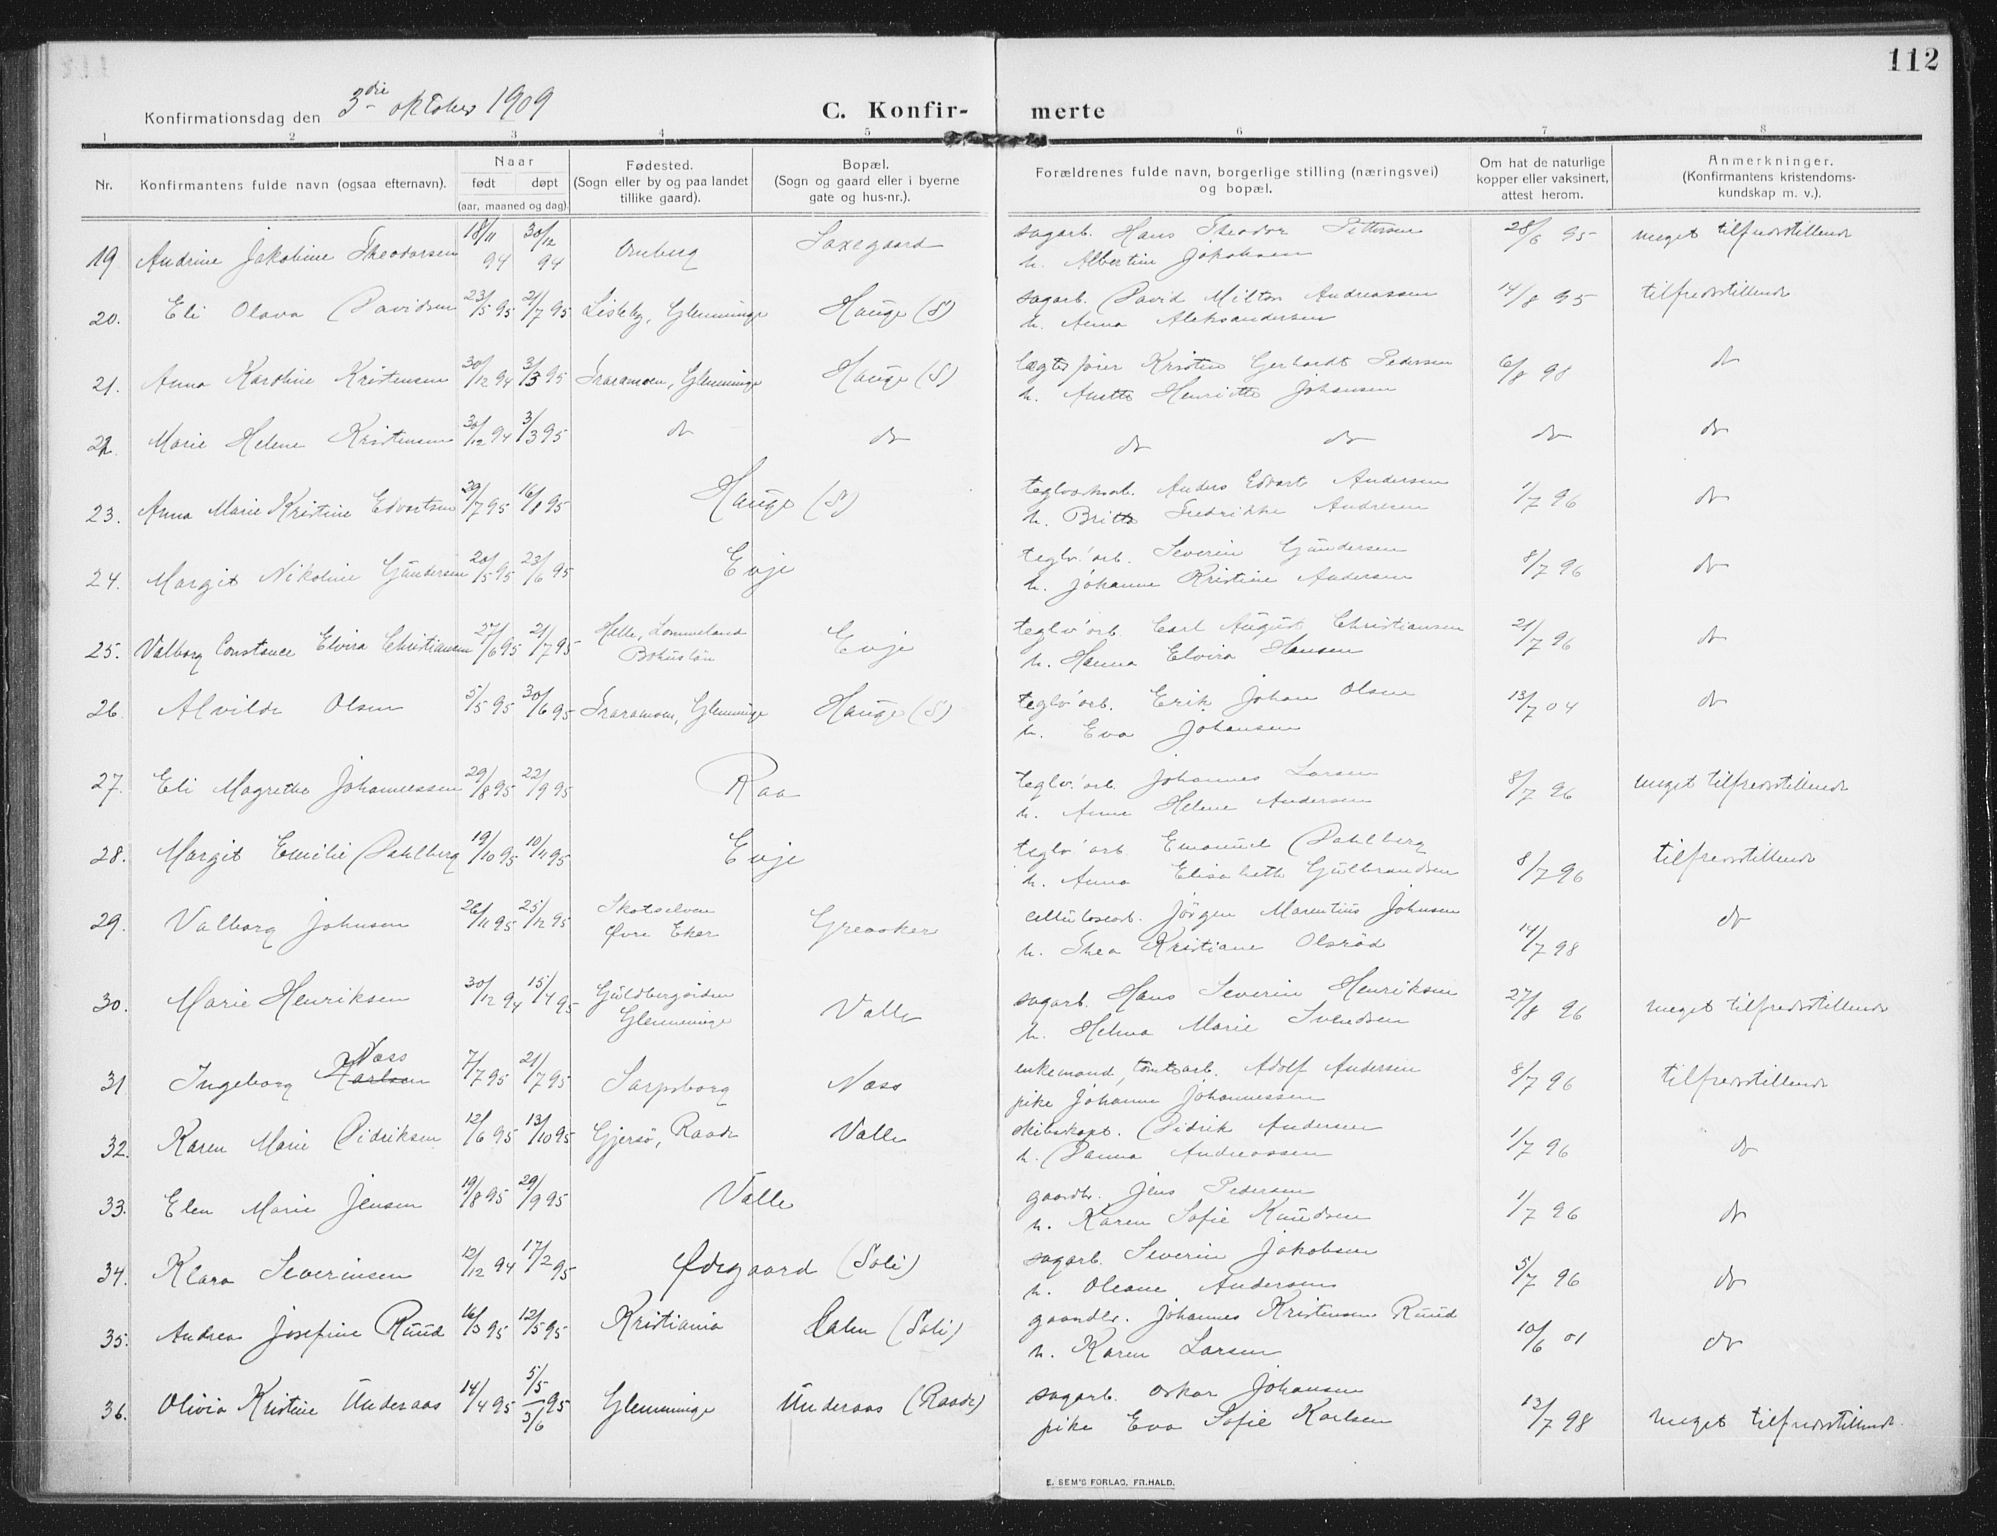 112
Konfirmationsdag den 3die oktober 1909
C. Konfirmerte
1 2 3 4 5 6 7 8
Nr. Konfirmantens fulde navn (ogsaa efternavn). Naar født døpt (aar, maaned og dag). Fødested. (Sogn eller by og paa landet tillike gaard). Bopæl. (Sogn og gaard eller i byerne gate og hus-nr.). Forældrenes fulde navn, borgerlige stilling (næringsvei) og bopæl. Om hat de naturlige kopper eller vaksinert, attest herom. Anmerkninger. (Konfirmantens kristendomskundskap m. v.).
19 Andrine Jakobine Theodorsen 18/11 94 30/12 94 Saxegaard sagarb. Hans Theodor Pettersen 28/6 95 meget tilfredsstillende
h. Albertine Jakobsen
20. Eli Olava Davidsen 23/5 95 21/7 95 Lisleby, Glemminge Hauge (S) sagarb. David Milton Andreassen 14/8 95 tilfredsstillende
h. Anna Aleksandersen
21. Anna Karoline Kristensen 30/12 94 3/3 95 Traramoen, Glemminge Hauge (S) lægtefører Kristen Gerhardt Pedersen 6/8 98 do
h. Anette Henriette Johansen
22. Marie Helene Kristensen 30/12 94 3/3 95 do do do do do do
23. Anna Marie Kristine Edvartsen 29/7 95 16/8 95 Hauge (S) teglverksarb. Anders Edvart Andersen 1/7 96 do
h. Britte Fredrikke Andresen
24. Margit Nikoline Gundersen 20/5 95 23/6 95 Evje teglv.arb. Severin Gundersen 8/7 96 do
h. Johanne Kristine Andersen
25. Valborg Constance Elvira Christiansen 27/6 95 21/7 95 Helle, Lommeland Bohuslän Evje teglv.arb. Carl August Christiansen 21/7 96 do
h. Hanna Elvira Hansen
26. Alvilde Olsen 5/5 95 30/6 95 Traramoen, Glemminge Hauge (S) teglv.arb. Erik Johan Olsen 13/7 04 do
h. Eva Johansen
27. Eli Magrethe Johannessen 29/8 95 22/9 95 Raa teglv.arb. Johannes Larsen 8/7 96 meget tilfredsstillende
h. Anna Helene Andersen
28. Margit Emilie Dahlberg 19/10 95 10/11 95 Evje teglv.arb Emanuel Dahlberg 8/7 96 tilfredsstillende
h. Anna Elisabeth Gulbrandsen
29. Valborg Johnsen 26/11 95 25/12 95 Skotselven Øvre Eker Greaaker cellulosearb. Jørgen Marentius Johnsen 14/7 98 do
h. Thea Kristiane Olsrød
30. Marie Henriksen 30/12 94 15/4 95 Guldbergsiden Glemminge Valle sagarb. Hans Severin Henriksen 27/8 96 meget tilfredsstillende
h. Helma Marie Svendsen
31 Ingeborg Karlsen Næss 7/7 95 21/7 95 Sarpsborg Næss enkemand, tomtearb. Adolf Andersen 8/7 96 tilfredsstillende
pike Johanne Johannessen
32. Karen Marie Didriksen 12/6 95 13/10 95 Gjersø, Raade Valle skibskapt. Didrik Andersen 1/7 96 do
h. Danna Andreassen
33. Elen Marie Jensen 19/8 95 29/9 95 Valle gaardbr. Jens Pedersen 1/7 96 do
h. Karen Sofie Knudsen
34. Klara Severinsen 12/12 94 17/2 95 Ødegaard (Soli) sagarb. Severin Jakobsen 5/7 96 do
h. Oleane Andersen
35. Andrea Josefine Ruud 16/3 95 12/5 95 Kristiania Dalen (Soli) gaardbr. Johannes Kristensen Ruud 10/6 01 do
h. Karen Larsen
36. Olivia Kristine Underaas 14/4 95 5/5 95 3/6 Glemminge Underaas (Raade) sagarb. Oskar Johansen 13/7 98 meget tilfredsstillende
pike Eva Sofie Karlsen
E. SEM'S FORLAG, FR.HALD.